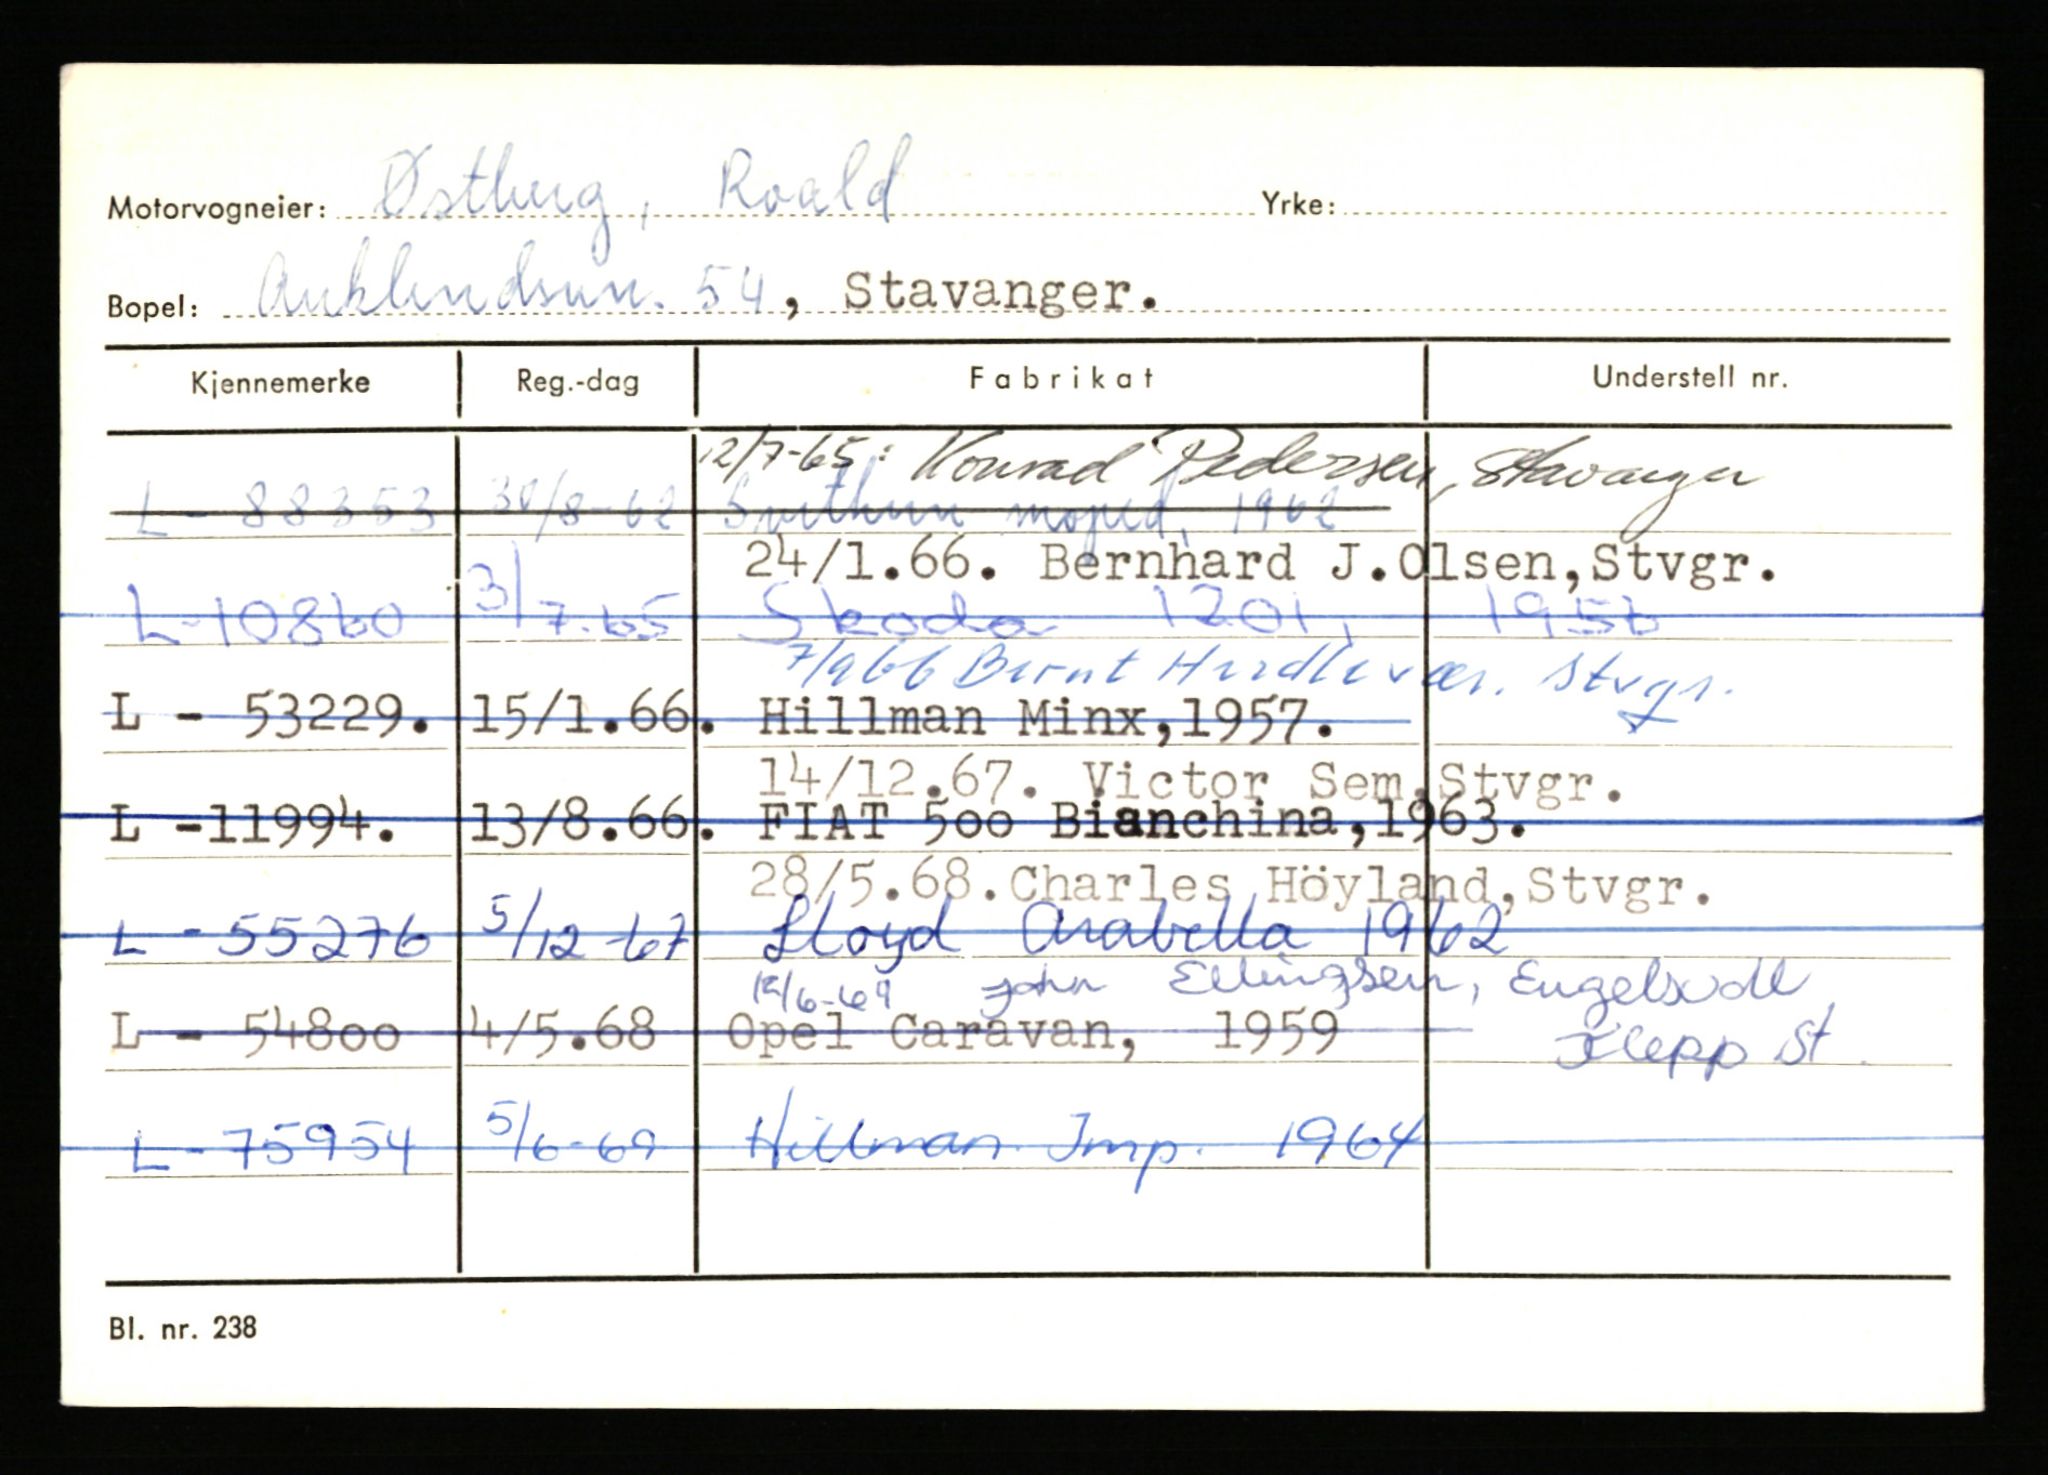 Motorvogneier: Østberg, Roald Yrke:
Bopel: 54, Stavanger.
Kjennemerke Reg.-dag Fabrikat Understell nr.
12/7-65: Konrad Pedersen, Stavanger
L - 88353 30/8-62 Svithun moped, 1962
24/1.66. Bernhard J.Olsen,Stvgr.
L-10860 3/7-65 Skoda 1201, 1956
7/9 66 Bernt Stvgr.
L - 53229. 15/1.66. Hillman Minx,1957.
14/12.67. Victor Sem,Stvgr.
L -11994. 13/8.66. FIAT 500 Bianchina,1963.
28/5.68.Charles Höyland,Stvgr.
L - 55276 5/12-67 Lloyd Arabella 1962
12/6-69 John Ellingsen, Engelsvoll
L - 54800 4/5.68 Opel Caravan, 1959 Klepp St.
L - 75954 5/6-69 Hillman Imp. 1964
Bl. nr. 238